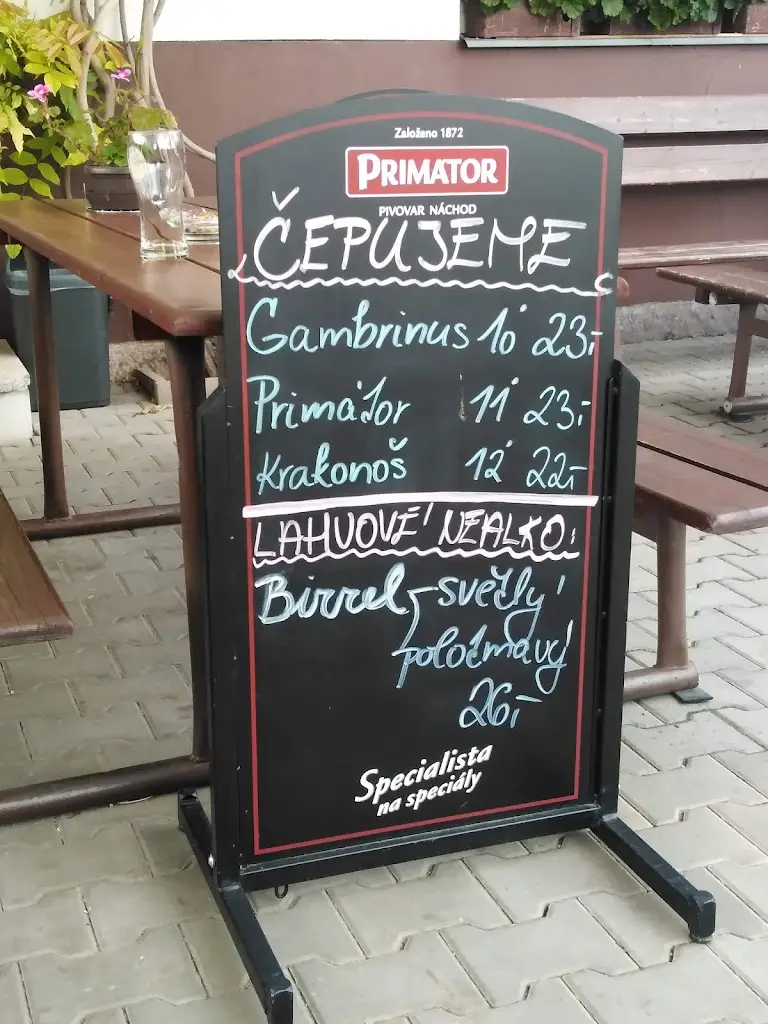 Založeno 1872
PRIMÁTOR
PIVOVAR NÁCHOD
ČEPUJEME
Gambrinus 10° 23,-
Primátor 11° 23,-
Krakonoš 12° 22,-
LAHVOVÉ NEALKO:
Birrel - světlý
polotmavý
26,-
Specialista
na speciály